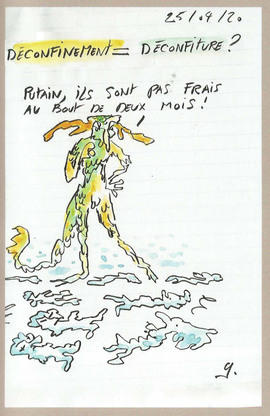 25/04/20
DÉCONFINEMENT = DÉCONFITURE ?
PUTAIN, ILS SONT PAS FRAIS
AU BOUT DE DEUX MOIS !
g.